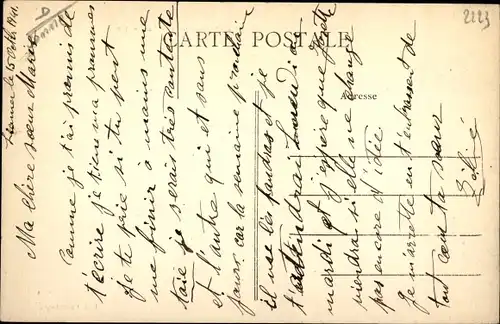 le 5 1911.
Ma chère sœur Marie
Comme je t'ai promis de
t'écrire je tiens ma promesse
je te prie si tu peut
me finir à moins une
taie je serais très contente
et l'autre qui et sans
jours car la semaine prochaine
il me les faudras et je
t'attendrai Lundi ou
mardi et j'espère que
viendras si elle ne change
pas encore d'idée
Je m'arrette en t'embrassent de
tout cœur ta sœur
CARTE POSTALE
Adresse
2223